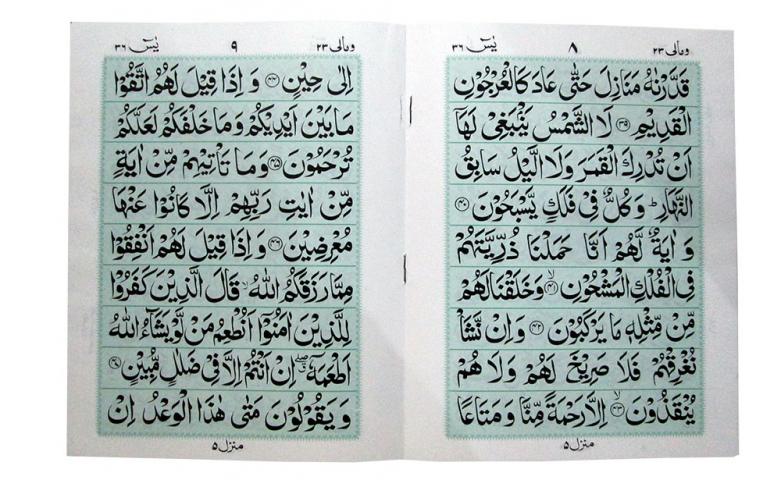 ومالی ٢٣
٨
يٰسٓ ٣٦
قَدَّرْنٰهُ مَنَازِلَ حَتّٰى عَادَ كَالْعُرْجُوْنِ
الْقَدِيْمِ ﴿٣٩﴾ لَا الشَّمْسُ يَنْۢبَغِيْ لَهَاۤ
اَنْ تُدْرِكَ الْقَمَرَ وَلَا الَّيْلُ سَابِقُ
النَّهَارِ ؕ وَكُلٌّ فِيْ فَلَكٍ يَّسْبَحُوْنَ ﴿٤٠﴾
وَ اٰيَةٌ لَّهُمْ اَنَّا حَمَلْنَا ذُرِّيَّتَهُمْ
فِي الْفُلْكِ الْمَشْحُوْنِ ﴿٤١﴾ وَخَلَقْنَا لَهُمْ
مِّنْ مِّثْلِهٖ مَا يَرْكَبُوْنَ ﴿٤٢﴾ وَاِنْ نَّشَاْ
نُغْرِقْهُمْ فَلَا صَرِيْخَ لَهُمْ وَلَا هُمْ
يُنْقَذُوْنَ ﴿٤٣﴾ اِلَّا رَحْمَةً مِّنَّا وَمَتَاعًا
منزل ٥
ومالی ٢٣
٩
يٰسٓ ٣٦
اِلٰى حِيْنٍ ﴿٤٤﴾ وَ اِذَا قِيْلَ لَهُمُ اتَّقُوْا
مَا بَيْنَ اَيْدِيْكُمْ وَمَا خَلْفَكُمْ لَعَلَّكُمْ
تُرْحَمُوْنَ ﴿٤٥﴾ وَمَا تَاْتِيْهِمْ مِّنْ اٰيَةٍ
مِّنْ اٰيٰتِ رَبِّهِمْ اِلَّا كَانُوْا عَنْهَا
مُعْرِضِيْنَ ﴿٤٦﴾ وَ اِذَا قِيْلَ لَهُمْ اَنْفِقُوْا
مِمَّا رَزَقَكُمُ اللّٰهُ ۙ قَالَ الَّذِيْنَ كَفَرُوْا
لِلَّذِيْنَ اٰمَنُوْۤا اَنُطْعِمُ مَنْ لَّوْ يَشَآءُ اللّٰهُ
اَطْعَمَهٗۤ ۖ اِنْ اَنْتُمْ اِلَّا فِيْ ضَلٰلٍ مُّبِيْنٍ ﴿٤٧﴾
وَ يَقُوْلُوْنَ مَتٰى هٰذَا الْوَعْدُ اِنْ
منزل ٥